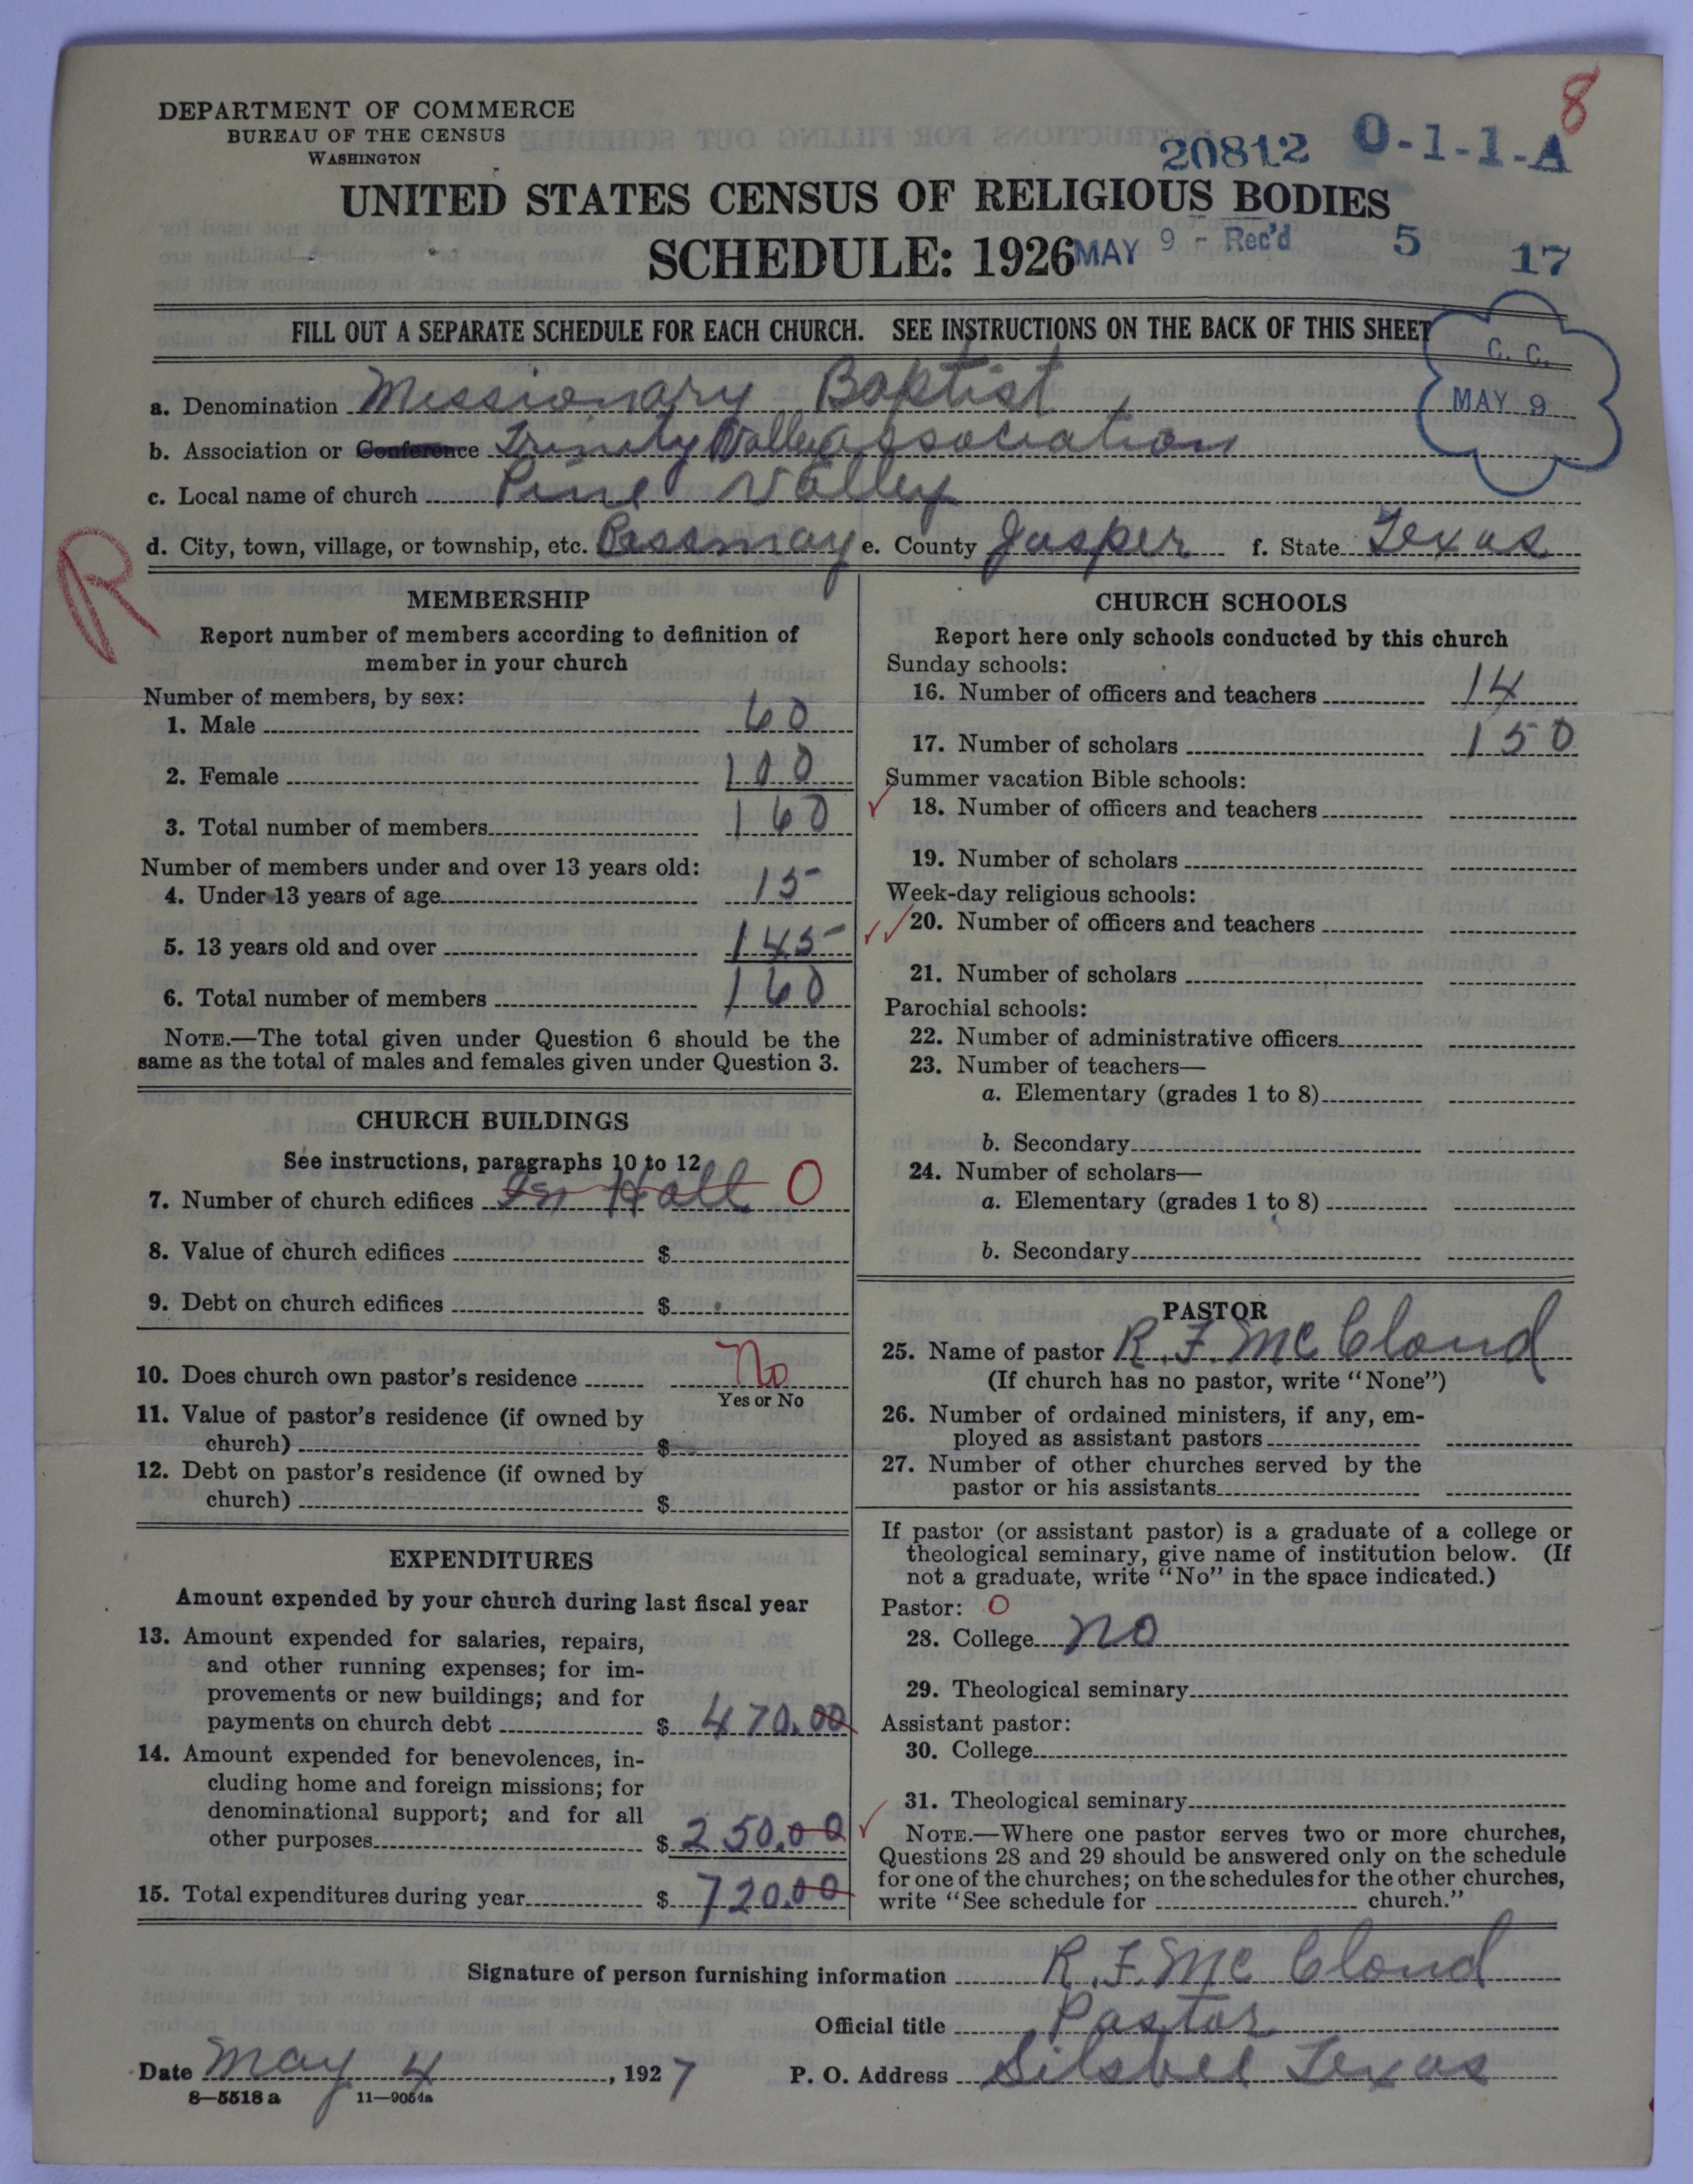 8
DEPARTMENT OF COMMERCE
BUREAU OF THE CENSUS
WASHINGTON
20812 0-1-1-A
UNITED STATES CENSUS OF RELIGIOUS BODIES
SCHEDULE: 1926
MAY 9 - Rec'd 5 17
FILL OUT A SEPARATE SCHEDULE FOR EACH CHURCH. SEE INSTRUCTIONS ON THE BACK OF THIS SHEET
C. C.
MAY 9
a. Denomination Missionary Baptist
b. Association or Conference Trinity Valley Association
c. Local name of church Pine Valley
d. City, town, village, or township, etc. Bessmay e. County Jasper f. State Texas
R
MEMBERSHIP
Report number of members according to definition of
member in your church
Number of members, by sex:
1. Male 60
2. Female 100
3. Total number of members 160
Number of members under and over 13 years old:
4. Under 13 years of age 15
5. 13 years old and over 145
6. Total number of members 160
NOTE.—The total given under Question 6 should be the
same as the total of males and females given under Question 3.
CHURCH BUILDINGS
See instructions, paragraphs 10 to 12
7. Number of church edifices In Hall 0
8. Value of church edifices $
9. Debt on church edifices $
10. Does church own pastor's residence No
Yes or No
11. Value of pastor's residence (if owned by
church) $
12. Debt on pastor's residence (if owned by
church) $
EXPENDITURES
Amount expended by your church during last fiscal year
13. Amount expended for salaries, repairs,
and other running expenses; for im-
provements or new buildings; and for
payments on church debt $ 470.00
14. Amount expended for benevolences, in-
cluding home and foreign missions; for
denominational support; and for all
other purposes $ 250.00
15. Total expenditures during year $ 720.00
CHURCH SCHOOLS
Report here only schools conducted by this church
Sunday schools:
16. Number of officers and teachers 14
17. Number of scholars 150
Summer vacation Bible schools:
18. Number of officers and teachers
19. Number of scholars
Week-day religious schools:
20. Number of officers and teachers
21. Number of scholars
Parochial schools:
22. Number of administrative officers
23. Number of teachers—
a. Elementary (grades 1 to 8)
b. Secondary
24. Number of scholars—
a. Elementary (grades 1 to 8)
b. Secondary
PASTOR
25. Name of pastor R. F. McCloud
(If church has no pastor, write "None")
26. Number of ordained ministers, if any, em-
ployed as assistant pastors
27. Number of other churches served by the
pastor or his assistants
If pastor (or assistant pastor) is a graduate of a college or
theological seminary, give name of institution below. (If
not a graduate, write "No" in the space indicated.)
Pastor: 0
28. College no
29. Theological seminary
Assistant pastor:
30. College
31. Theological seminary
NOTE.—Where one pastor serves two or more churches,
Questions 28 and 29 should be answered only on the schedule
for one of the churches; on the schedules for the other churches,
write "See schedule for church."
Signature of person furnishing information R. F. McCloud
Official title Pastor
Date May 4, 1927 P. O. Address Silsbee Texas
8—5518 a 11—9054a